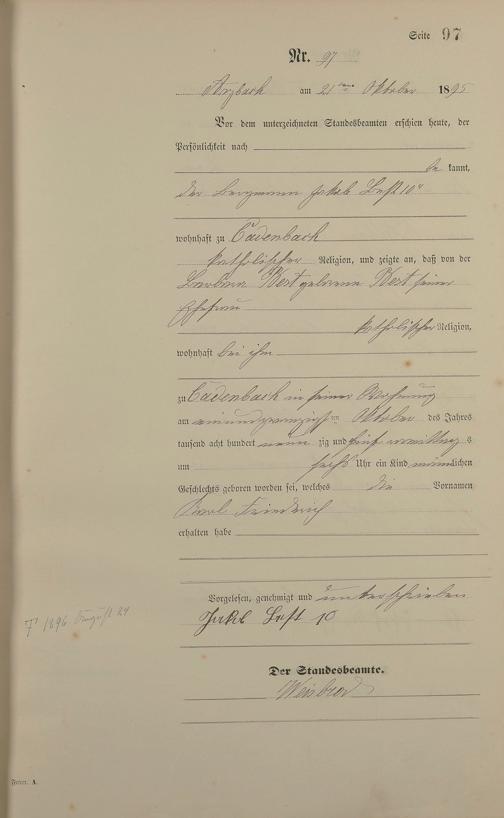 Seite 97
Nr. 97
Arzbach am 21ten Oktober 1895
Vor dem unterzeichneten Standesbeamten erschien heute, der
Persönlichkeit nach
be kannt,
der Bergmann Jakob 10r
wohnhaft zu Cadenbach
katholischer Religion, und zeigte an, daß von der
geborene seiner
Ehefrau
katholischer Religion,
wohnhaft bei ihm
zu Cadenbach in seiner Wohnung
am einundzwanzigsten Oktober des Jahres
tausend acht hundert neun zig und fünf vormittags
um sechs Uhr ein Kind männlichen
Geschlechts geboren worden sei, welches die Vornamen
Karl Friedrich
erhalten habe
Vorgelesen, genehmigt und unterschrieben
Jakob 10
† 1896 August 24
Der Standesbeamte.
Weisbrod
Form. A.